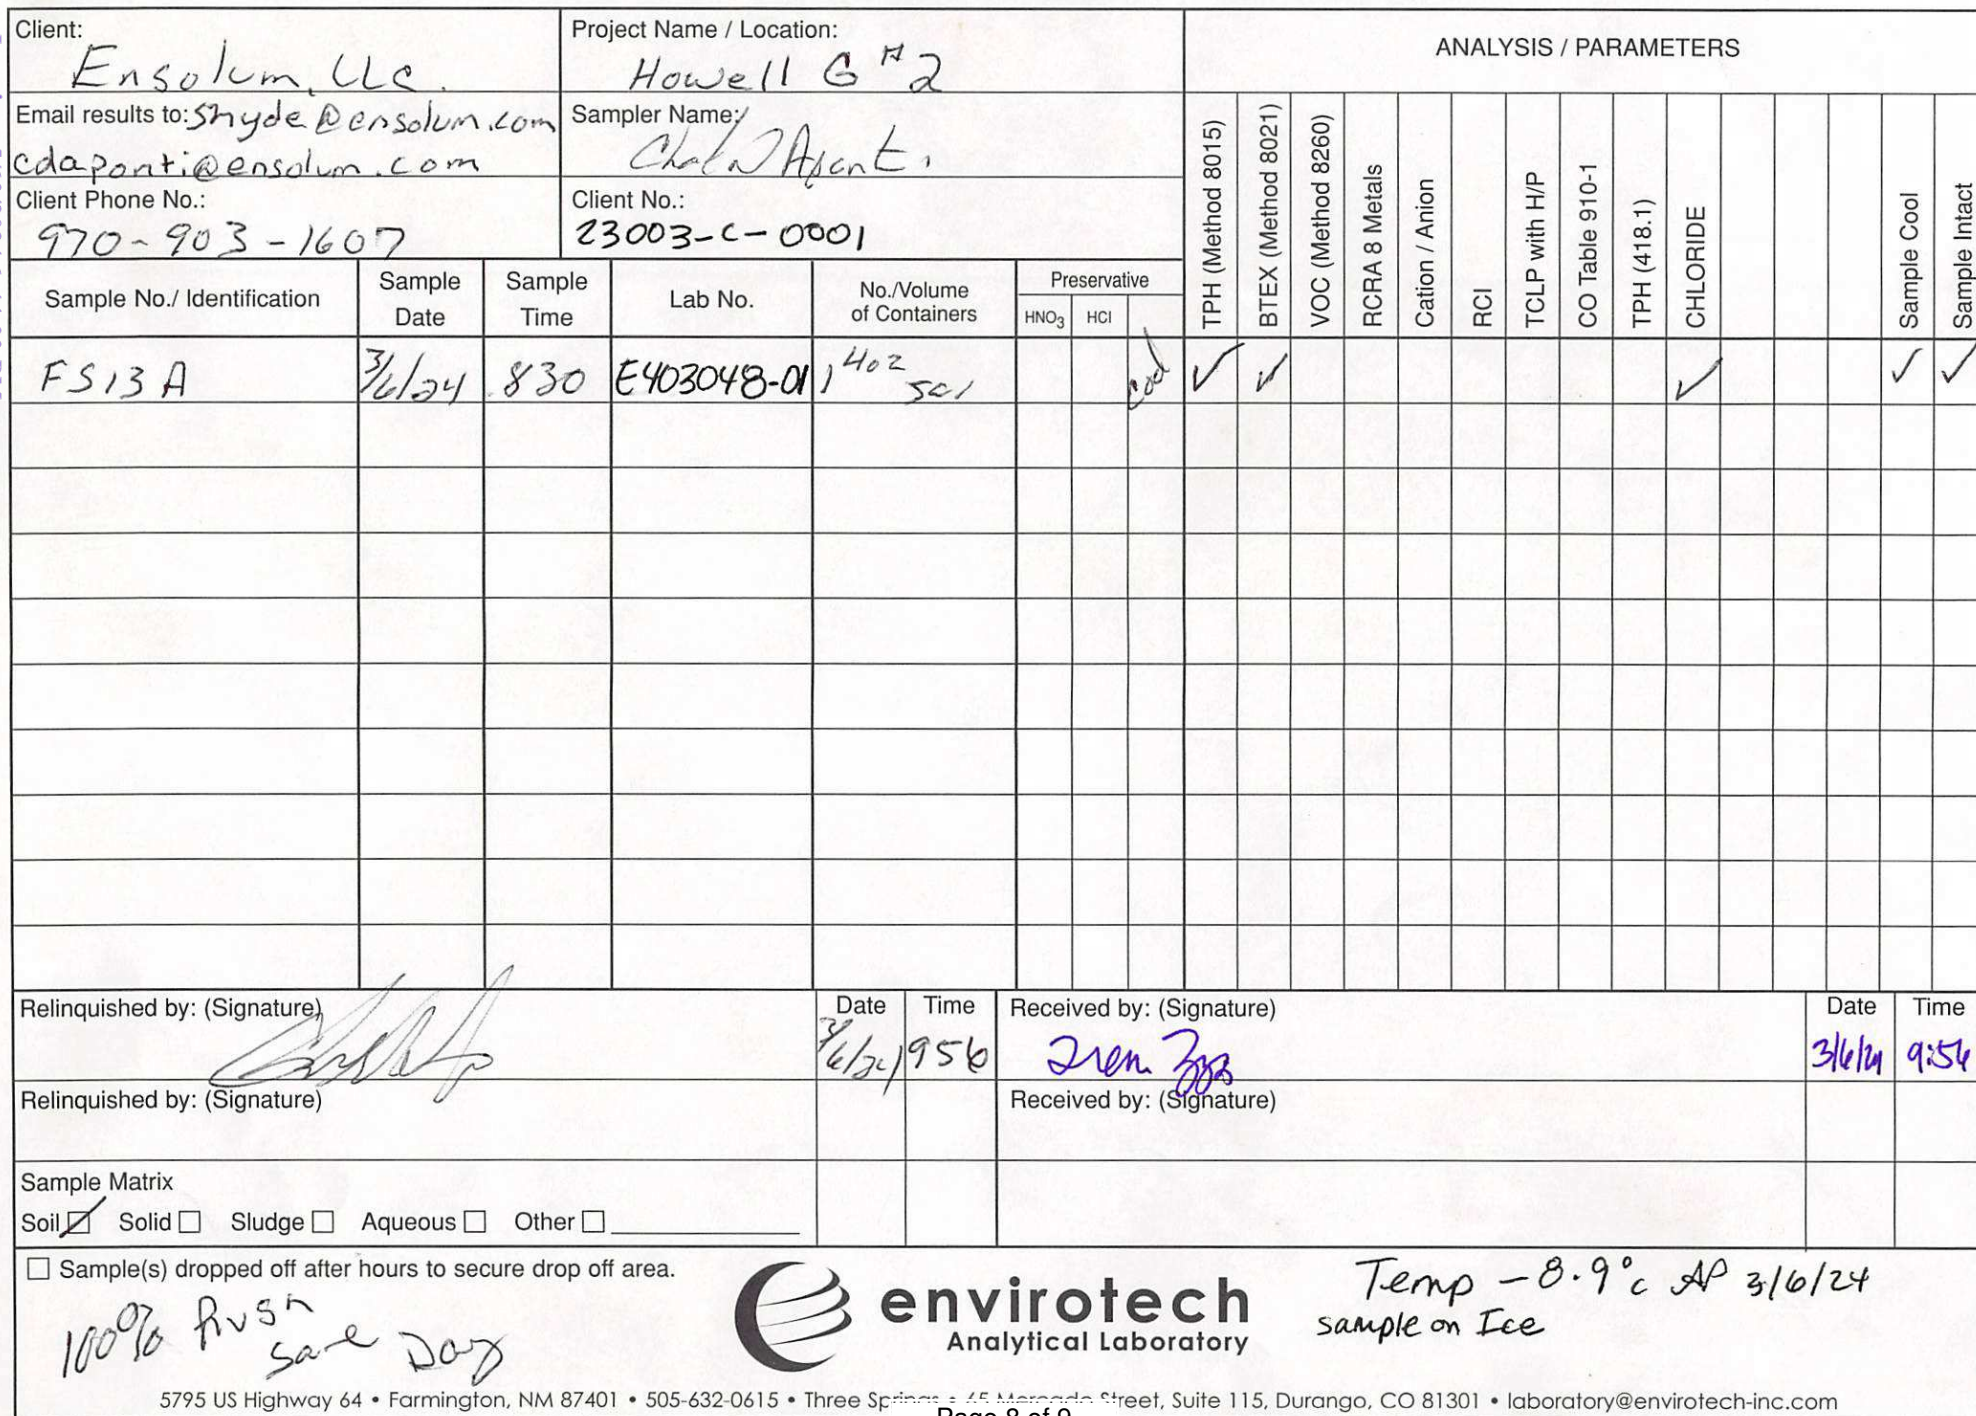 Client:
Ensolum, LLC.
Project Name / Location:
Howell G #2
ANALYSIS / PARAMETERS
Email results to: shyde@ensolum.com
cdaponti@ensolum.com
Sampler Name:
Client Phone No.:
970-903-1607
Client No.:
23003-C-0001
Sample No./ Identification
Sample Date
Sample Time
Lab No.
No./Volume of Containers
Preservative
HNO3
HCl
cool
TPH (Method 8015)
BTEX (Method 8021)
VOC (Method 8260)
RCRA 8 Metals
Cation / Anion
RCI
TCLP with H/P
CO Table 910-1
TPH (418.1)
CHLORIDE
Sample Cool
Sample Intact
FS13A 3/6/24 830 E403048-01 1 4oz ✓ ✓ ✓ ✓ ✓
Relinquished by: (Signature)
Date
3/6/24
Time
956
Received by: (Signature)
Date
3/6/24
Time
9:56
Relinquished by: (Signature)
Received by: (Signature)
Sample Matrix
Soil ☑ Solid ☐ Sludge ☐ Aqueous ☐ Other ☐
☐ Sample(s) dropped off after hours to secure drop off area.
100% Rush
Same Day
envirotech
Analytical Laboratory
Temp - 8.9°c AP 3/6/24
sample on Ice
5795 US Highway 64 • Farmington, NM 87401 • 505-632-0615 • Three Springs • 65 Mercado Street, Suite 115, Durango, CO 81301 • laboratory@envirotech-inc.com
Page 8 of 9